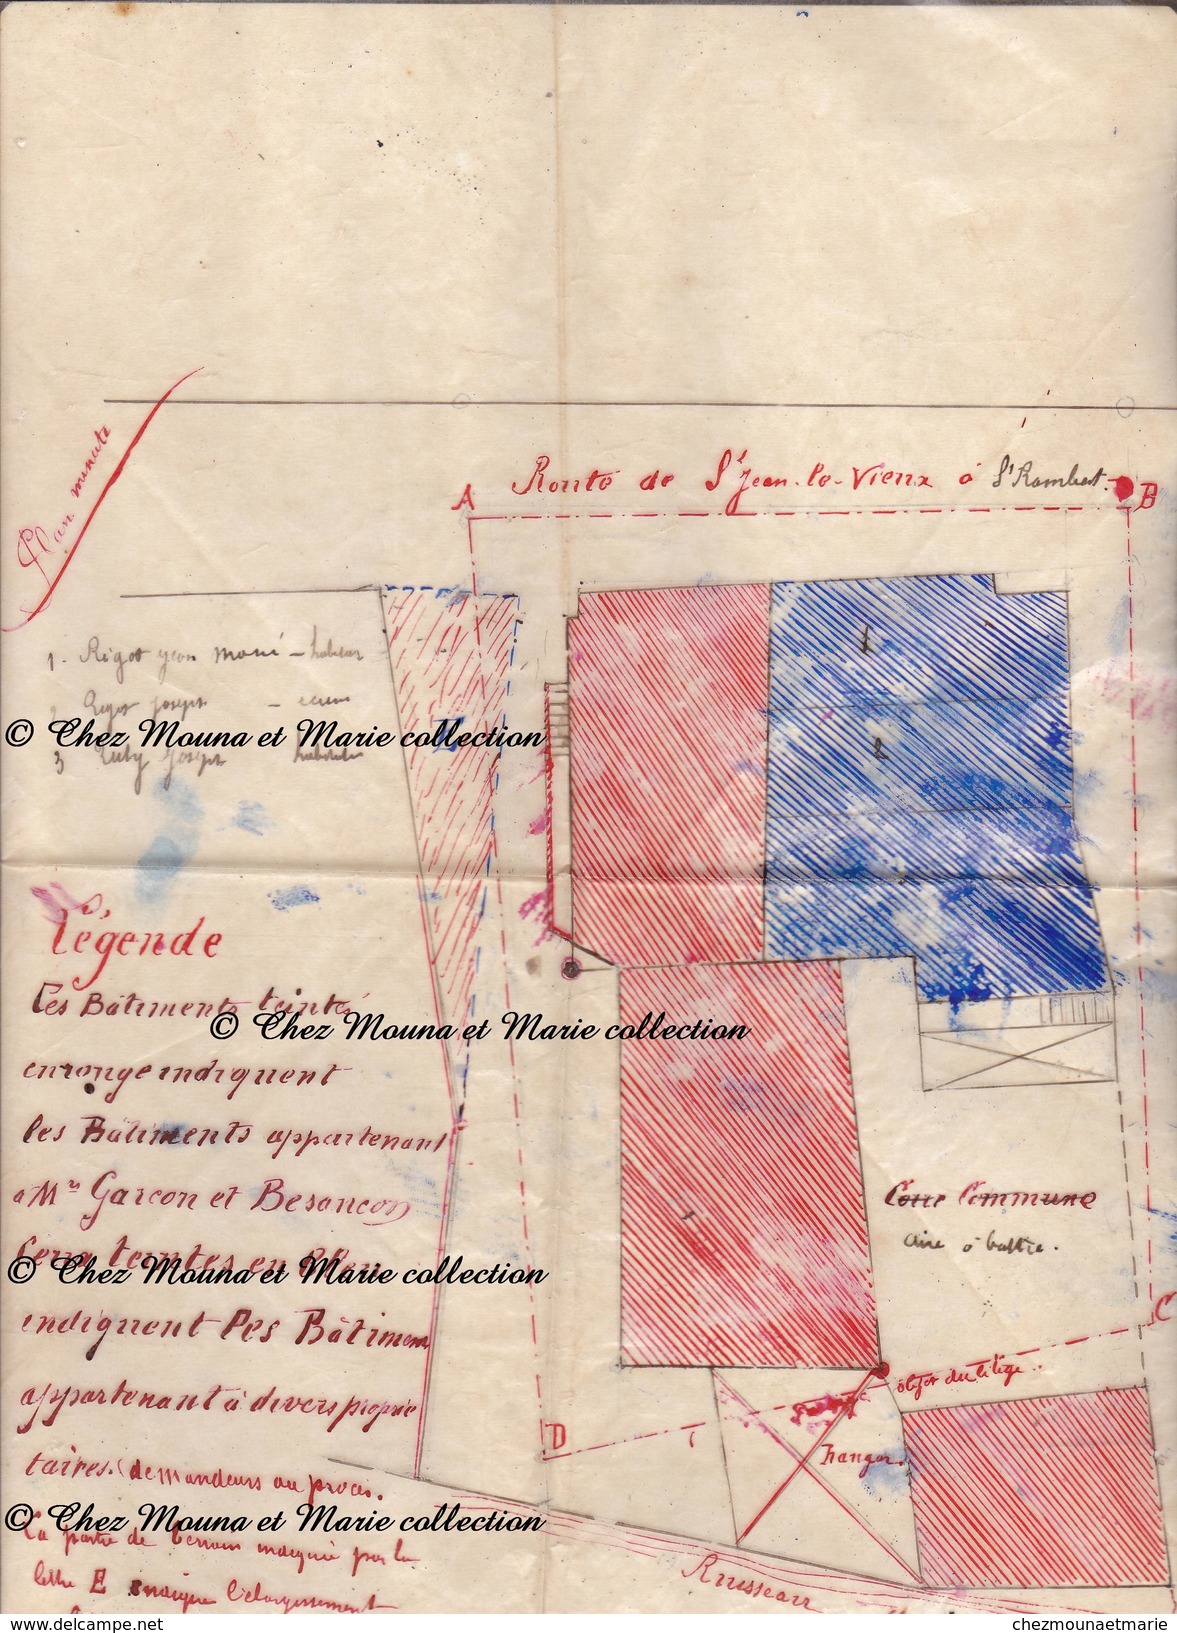 Plan minute
Route de St Jean-le-Vieux à St Rambert.
A
B
1 - Rigot jean marie - habitation
2 Rigot joseph - écurie
3 Luby Joseph habitation
© Chez Mouna et Marie collection
1
2
Légende
Les Bâtiments teintés
© Chez Mouna et Marie collection
en rouge indiquent
les Bâtiments appartenant
a Mrs Garcon et Besancon
Ceux teintes en Bleu
© Chez Mouna et Marie collection
indiquent les Bâtiment
appartenant à divers proprié
taires. (demandeurs au procès.
© Chez Mouna et Marie collection
La partie de terrain indiquée par la
lettre E indique l'élargissement
Cour Commune
aire à battre.
C
objet du litige..
D
hangar.
Ruisseau
delcampe.net
chezmounaetmarie